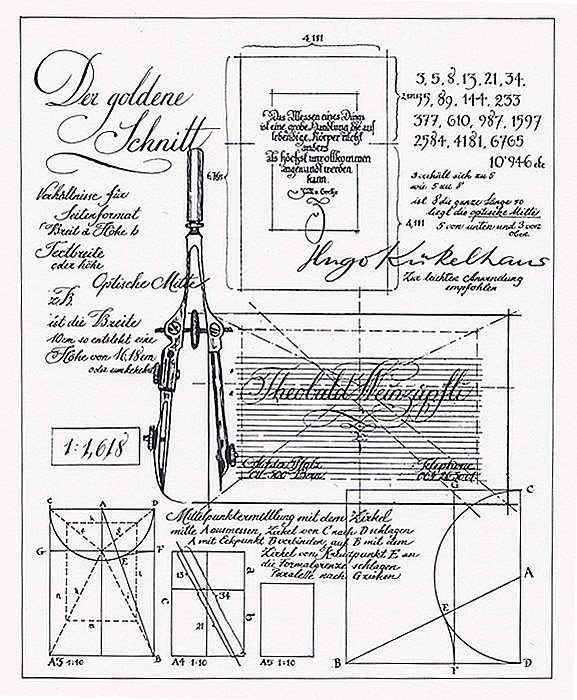 Der goldene
Schnitt
4,111
6,765
Das Messen eines Dings
ist eine grobe Handlung die auf
lebendige Körper nicht
anders
als höchst unvollkommen
angewandt werden
kann.
3, 5, 8, 13, 21, 34,
55, 89, 144, 233
377, 610, 987, 1597
2584, 4181, 6765
10'946 etc
3 verhält sich zu 5
wie 5 zu 8
ist 8 die ganze Länge so
liegt die optische Mitte
5 von unten und 3 von
oben
4,111
Hugo Kükelhaus
Zur leichten Anwendung
empfohlen
Verhältnisse für
Seitenformat
Breit à Höhe b
Textbreite
oder höhe
Optische Mitte
z.B.
ist die Breite
10cm so entsteht eine
Höhe von 16,18cm
oder umkehrt
1:1,618
Theobald Weinzäpfli
Telephone
Mittelpunktermittlung mit dem Zirkel
mitte A ausmessen, Zirkel von C nach D schlagen
A mit Eckpunkt B verbinden, auf B mit dem
Zirkel von Kreuzpunkt E an
die Formatgrenze schlagen
Paralelle nach G ziehen
C A D
G F
E
B
A3 1:10
13
34
21
A4 1:10
A5 1:10
G C
A
E
B F D